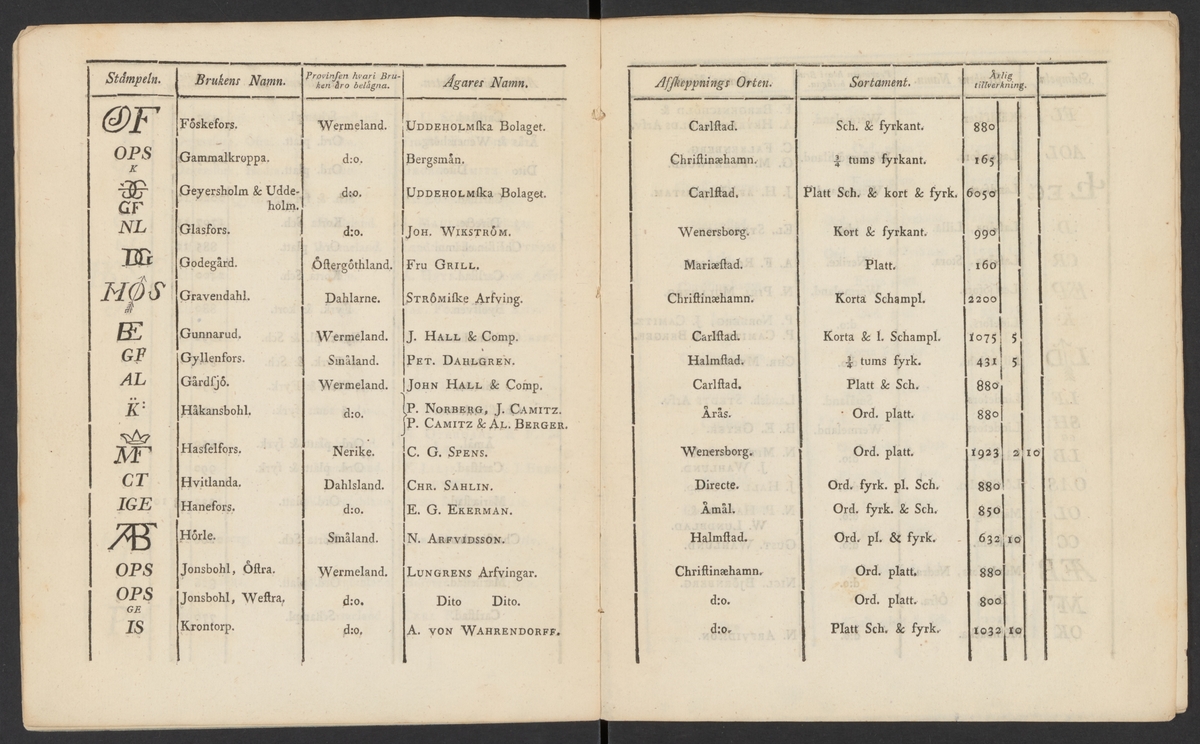 Stämpeln. Brukens Namn. Provinſen hvari Bru- Ägares Namn. Afſkeppnings Orten. Sortament. Årlig
ken äro belägna. tillverkning.
F Föskefors. Wermeland. UDDEHOLMſka Bolaget. Carlſtad. Sch. & fyrkant. 880
OPS Gammalkroppa. d:o. Bergsmän. Chriſtinæhamn. ¾ tums fyrkant. 165
K
Geyersholm & Udde- d:o. UDDEHOLMſka Bolaget. Carlſtad. Platt Sch. & kort & fyrk. 6050
GF holm.
NL Glasfors. d:o. JOH. WIKSTRÖM. Wenersborg. Kort & fyrkant. 990
DG Godegård. Öſtergöthland. Fru GRILL. Mariæſtad. Platt. 160
HØS Gravendahl. Dahlarne. STRÖMiſke Arfving. Chriſtinæhamn. Korta Schampl. 2200
BE Gunnarud. Wermeland. J. HALL & Comp. Carlſtad. Korta & l. Schampl. 1075 5
GF Gyllenfors. Småland. PET. DAHLGREN. Halmſtad. ¾ tums fyrk. 431 5
AL Gårdſjö. Wermeland. JOHN HALL & Comp. Carlſtad. Platt & Sch. 880
K̈: Håkansbohl. d:o. P. NORBERG, J. CAMITZ. Årås. Ord. platt. 880
P. CAMITZ & AL. BERGER.
MF Hasſelfors. Nerike. C. G. SPENS. Wenersborg. Ord. platt. 1923 2 10
CT Hvitlanda. Dahlsland. CHR. SAHLIN. Directe. Ord. fyrk. pl. Sch. 880
IGE Hanefors. d:o. E. G. EKERMAN. Åmål. Ord. fyrk. & Sch. 850
ÆB Hörle. Småland. N. ARFVIDSSON. Halmſtad. Ord. pl. & fyrk. 632 10
OPS Jonsbohl, Öſtra. Wermeland. LUNGRENS Arfvingar. Chriſtinæhamn. Ord. platt. 880
OPS Jonsbohl, Weſtra. d:o. Dito Dito. d:o. Ord. platt. 800
GE
IS Krontorp. d:o. A. VON WAHRENDORFF. d:o. Platt Sch. & fyrk. 1032 10